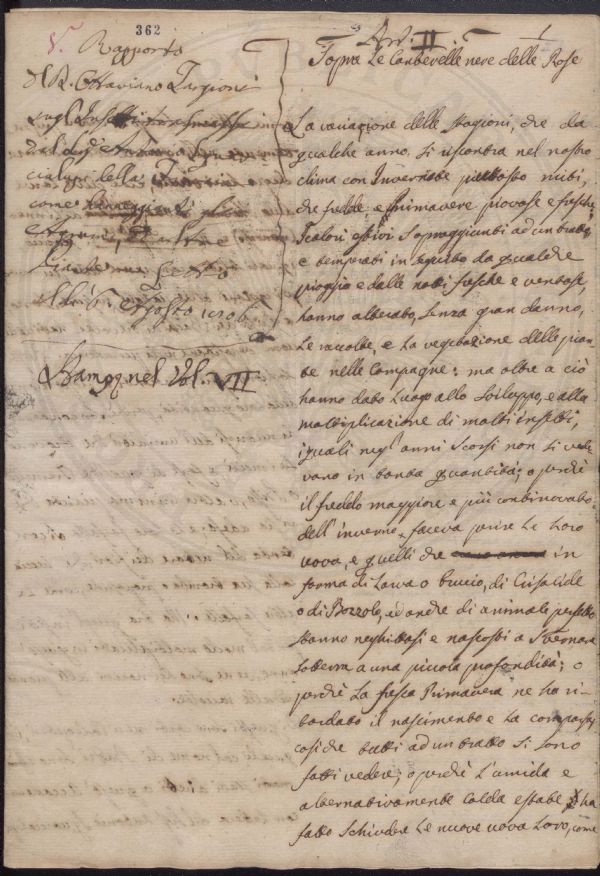 362
V.
Rapporto
del R. Ottaviano Targioni
sugl'Insetti
Letto
6. Agosto
Stamp. nel Vol. VII
Art. II.
Sopra Le Canterelle nere delle Rose
La variazione delle stagioni, che da
qualche anno si riscontra nel nostro
clima con Invernate piuttosto miti,
che fredde, e Primavere piovose e fresche,
I calori estivi sopraggiunti ad un tratto,
e temperati in seguito da qualche
pioggia e dalle notti fresche e ventose,
hanno alterato, senza gran danno,
Le raccolte, e La vegetazione delle pian-
te nelle Campagne: ma oltre a ciò
hanno dato Luogo allo Sviluppo, e alla
moltiplicazione di molti insetti,
i quali negl'anni scorsi non si vede-
vano in tanta quantità; o perchè
il freddo maggiore e più continovato
dell'inverno, faceva perire Le Loro
uova, e quelli che in
forma di Larva o bruccio, di Crisalide
o di Bozzolo, ed anche di animale perfetto
stanno neghittosi e nascosti a svernare
sotterra a una piccola profondità; o
perchè La fresca Primavera ne ha ri-
tardato il nascimento e La comparsa,
cosichè tutti ad un tratto si sono
fatti vedere; o perchè L'umida e
alternativamente calda estate ha
fatto schiudere Le nuove uova Loro, come